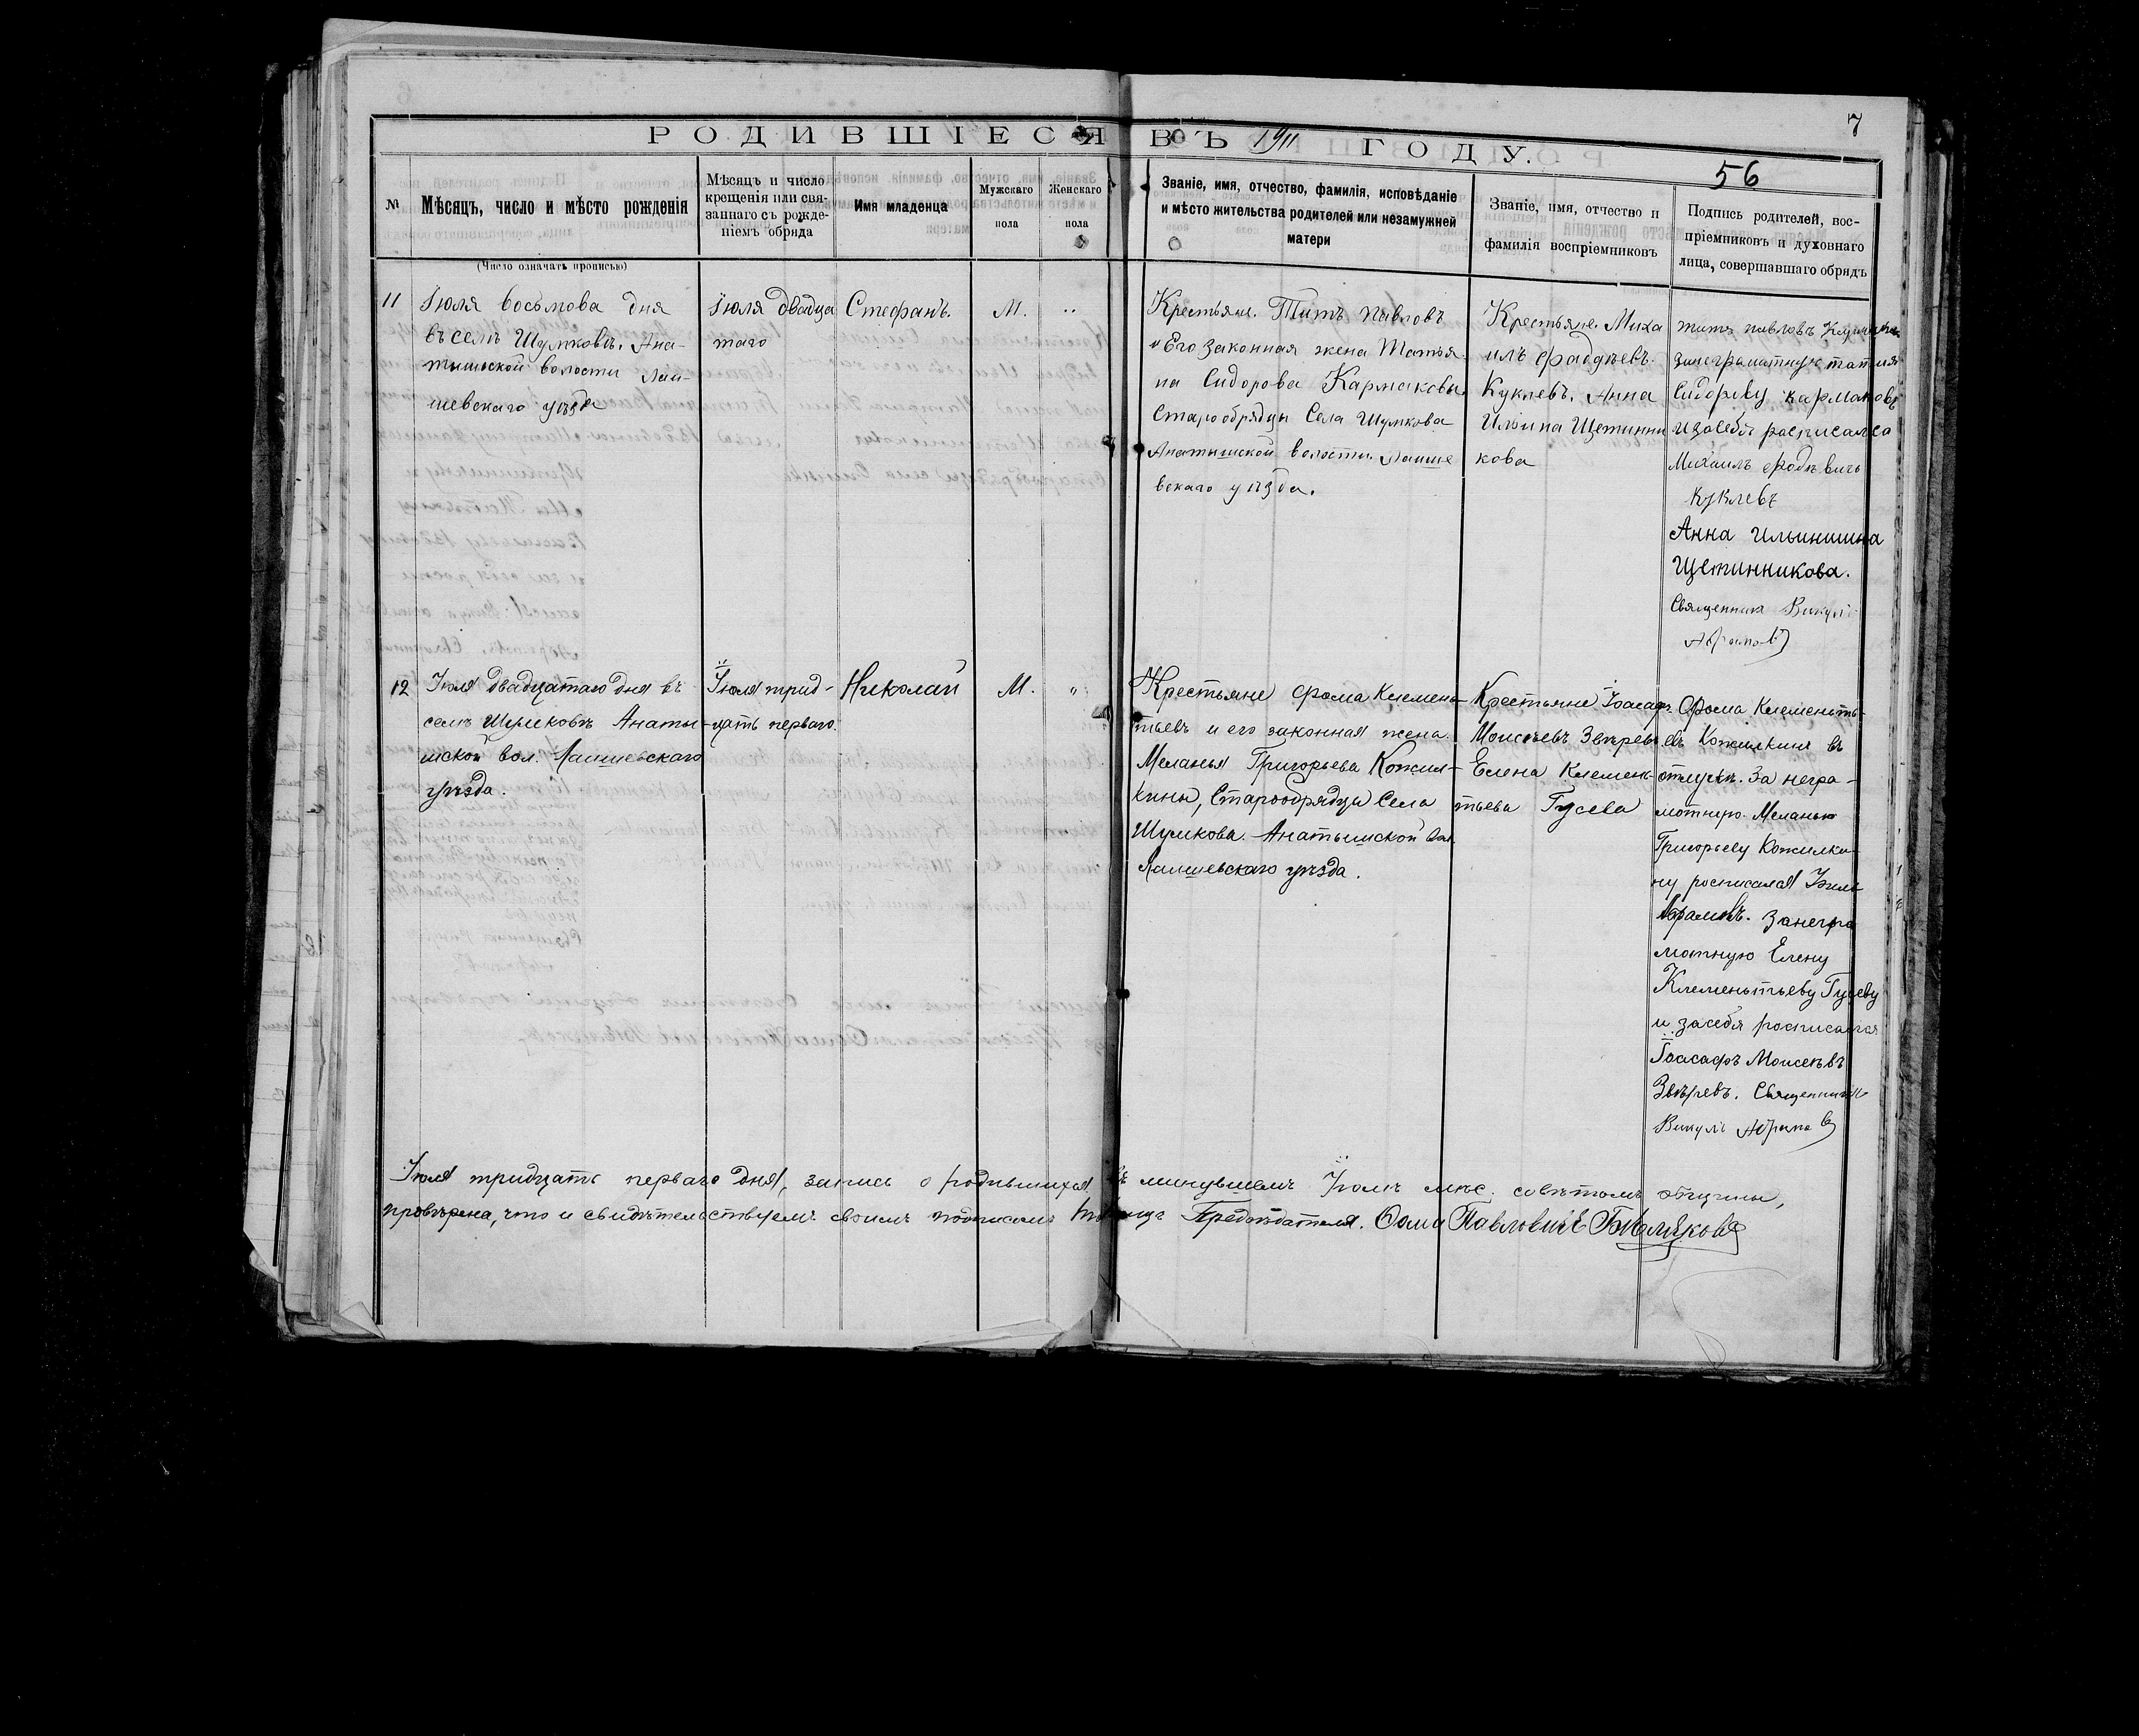 7
РОДИВШІЕСЯ ВЪ 1911 ГОДУ.
56
№
Мѣсяцъ, число и мѣсто рожденія
(Число означать прописью)
Мѣсяцъ и число
крещенія или свя-
заннаго съ рожде-
ніемъ обряда
Имя младенца
Мужскаго
пола
Женскаго
пола
Званіе, имя, отчество, фамилія, исповѣданіе
и мѣсто жительства родителей или незамужней
матери
Званіе, имя, отчество и
фамилія воспріемниковъ
Подпись родителей, вос-
пріемниковъ и духовнаго
лица, совершавшаго обрядъ
11
Іюля восьмова дня
въ селѣ Шумковѣ. Ана-
тышской волости Лаи-
шевскаго уѣзда
Іюля двадца
таго
Стефанъ.
М.
"
Крестьяне. Титъ Павловъ
и Его законная жена Татья
на Сидорова Кармаковы
Старообрядцы Села Шумкова
Анатышской волости. Лаише
вскаго уѣзда.
Крестьяне. Миха
илъ Фаддѣевъ.
Куклевъ. Анна
Ильина Щетинни
кова
титъ павловъ
занеграматную
Сидорову кармаковъ
изасебѧ росписалса
Михаилъ Фодѣвичь
Куклевъ
Анна Ильинишна
Щетинникова.
Священникъ Викулъ
Абрамовъ
12
Іюля двадцатаго дня въ
селѣ Шумковѣ Анаты-
шской вол. Лаишевскаго
уѣзда.
Іюля трид-
цать перваго.
Николай
М.
"
Крестьяне Фома Клемень-
тьевъ и его законная жена.
Меланья Григорьева Кожил-
кины, Старообрядцы Села
Шумкова. Анатышской вол.
Лаишевскаго уѣзда.
Крестьяне Іоасафъ.
Моисѣевъ Звѣревъ
Елена Клемень-
тьева Гусева
Фома Клеменьть-
евъ Кожилкинъ въ
отлучкѣ. За негра-
мотную Меланью
Григорьеву Кожилки-
ну росписался
Абрамовъ. Занегра
мотную Елену
Клеменьтьеву Гусеву
и засебя росписался
Іоасафъ Моисѣевъ
Звѣревъ. Священникъ
Викулъ Абрамовъ
Іюля тридцать перваго дня, запись о родившихся въ минувшемъ Іюлѣ мѣс. совѣтомъ общины,
провѣрена, что и свидѣтельствуемъ своимъ подписомъ Предсѣдателя. Фома Павловичъ Бѣляковъ